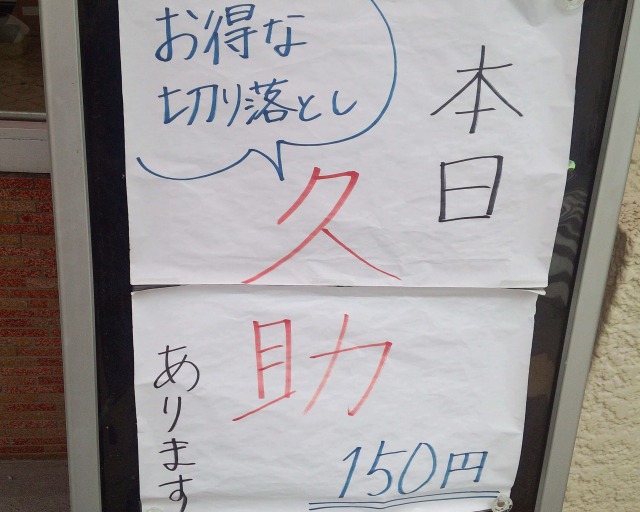 本日
お得な
切り落とし
久助
あります
150円